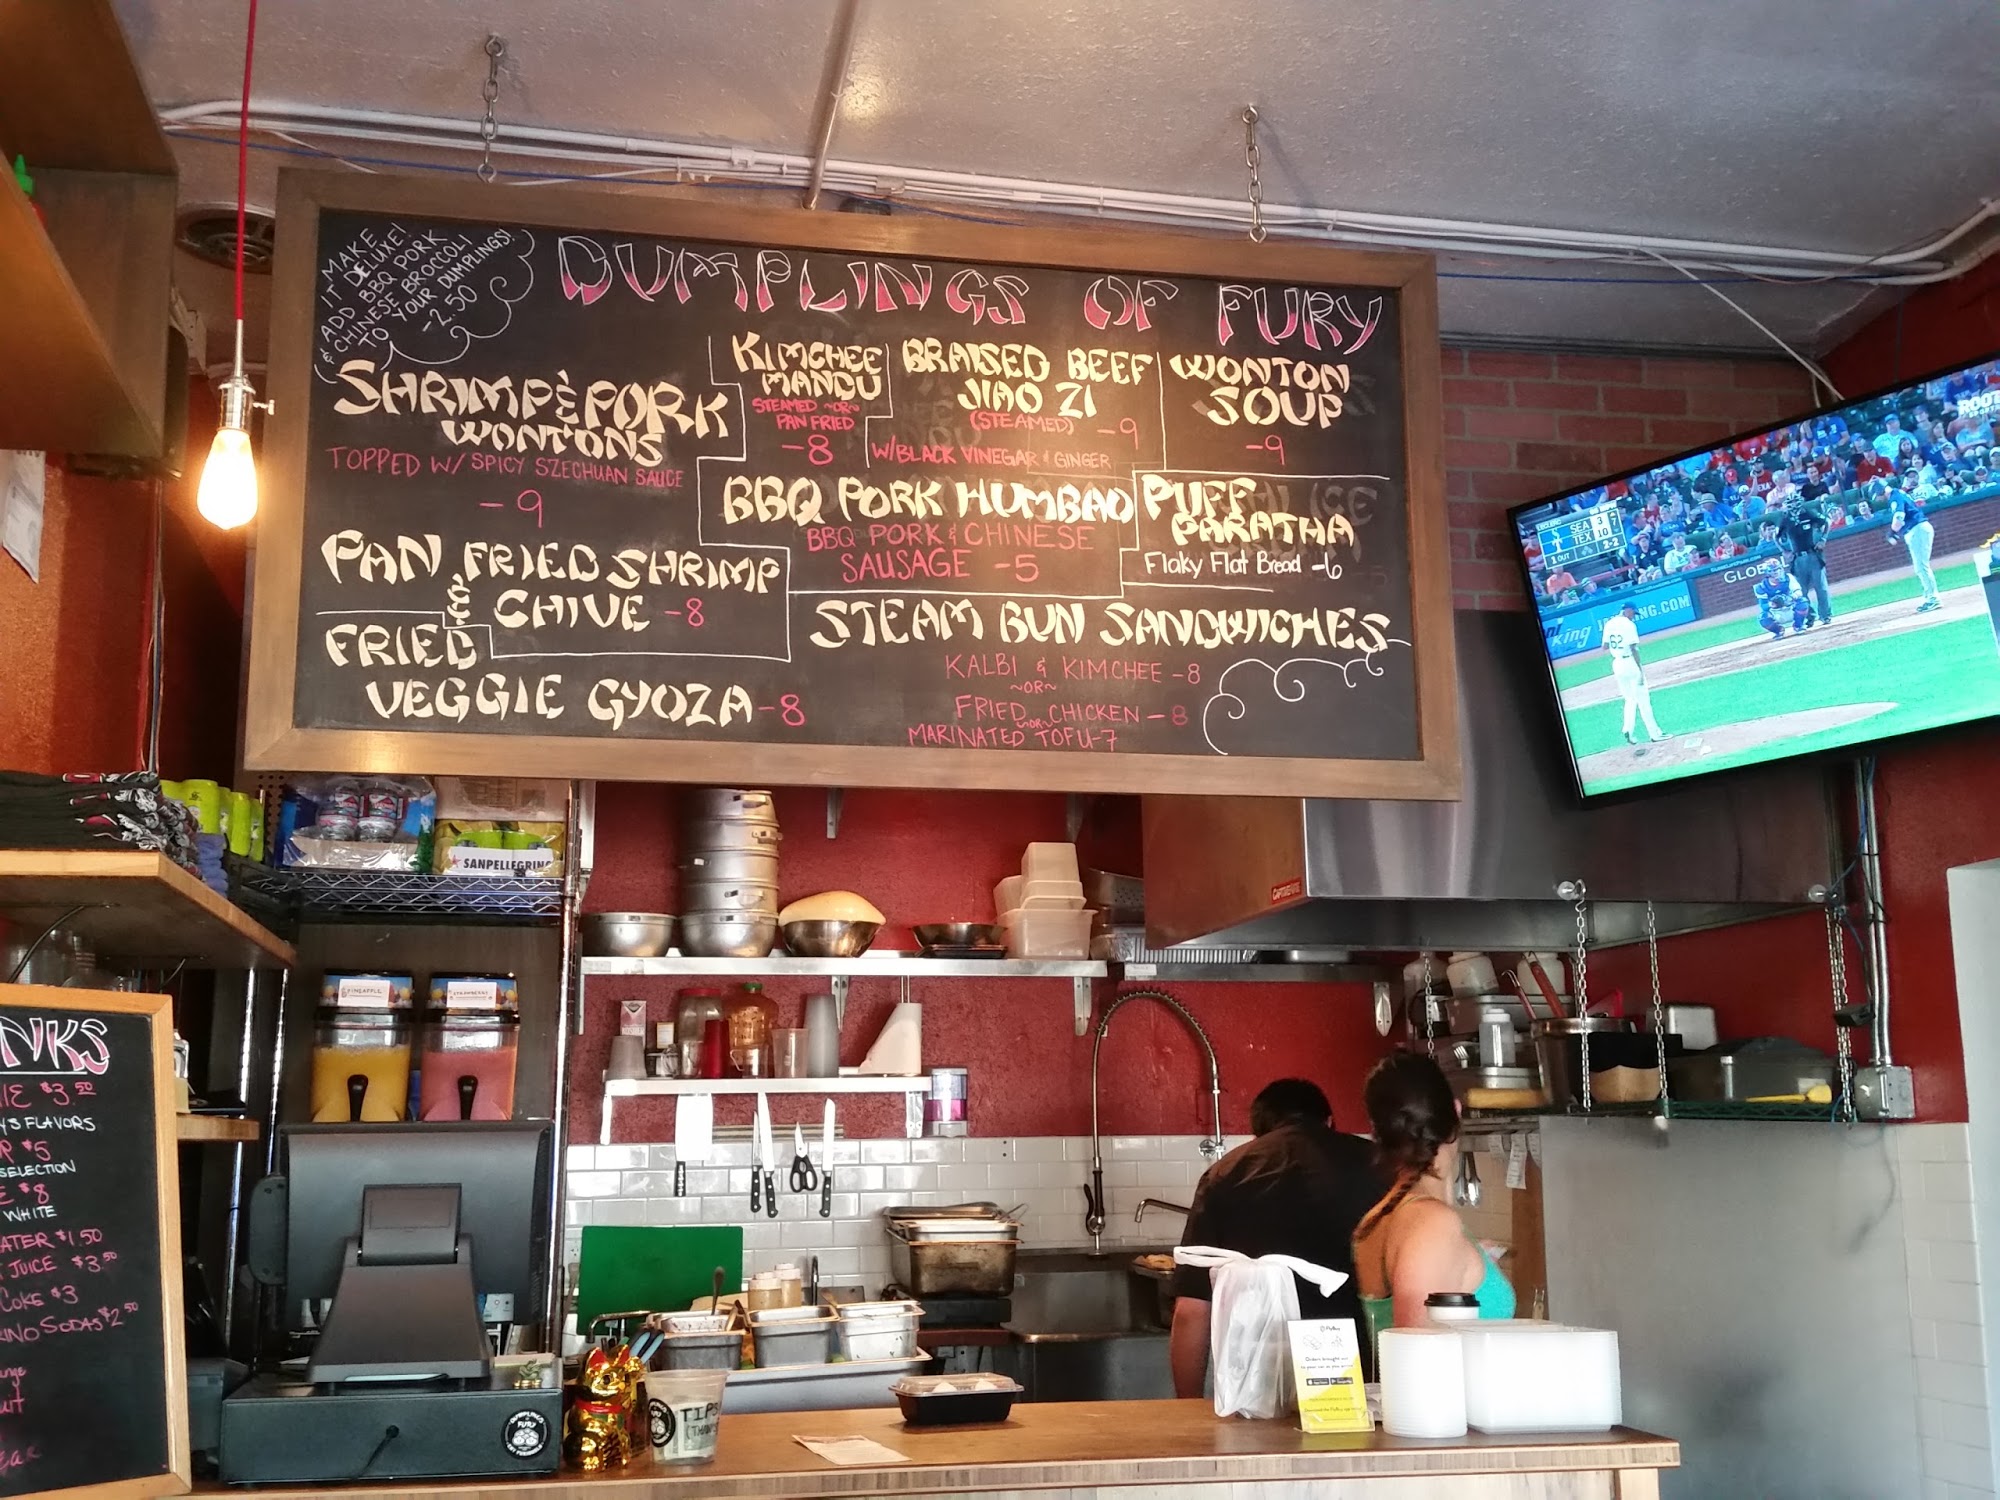 MAKE
IT DELUXE!
ADD BBQ PORK
& CHINESE BROCCOLI
TO YOUR DUMPLINGS!
-2.50
DUMPLINGS OF FURY
SHRIMP & PORK
WONTONS
TOPPED W/ SPICY SZECHUAN SAUCE
-9
KIMCHEE
MANDU
STEAMED ~OR~
PAN FRIED
-8
BRAISED BEEF
JIAO ZI
(STEAMED) -9
W/BLACK VINEGAR & GINGER
WONTON
SOUP
-9
BBQ PORK HUMBAO
BBQ PORK & CHINESE
SAUSAGE -5
PUFF
PARATHA
Flaky Flat Bread -6
PAN FRIED SHRIMP
& CHIVE -8
FRIED
VEGGIE GYOZA -8
STEAM BUN SANDWICHES
KALBI & KIMCHEE -8
~OR~
FRIED CHICKEN -8
~OR~
MARINATED TOFU -7
ROOT
SEA 3 7
TEX 10
1 OUT 2-2
GLOB
.COM
King
62
SANPELLEGRINO
CAPTIVEAIRE
PINEAPPLE
STRAWBERRY
NKS
IE $3.50
'S FLAVORS
R $5
SELECTION
E $8
WHITE
ATER $1.50
T JUICE $3.50
COKE $3
RINO SODAS $2.50
nge
uit
EAR
DUMPLINGS
OF
FURY
TIPS
Orders brought out
to your car as you arrive